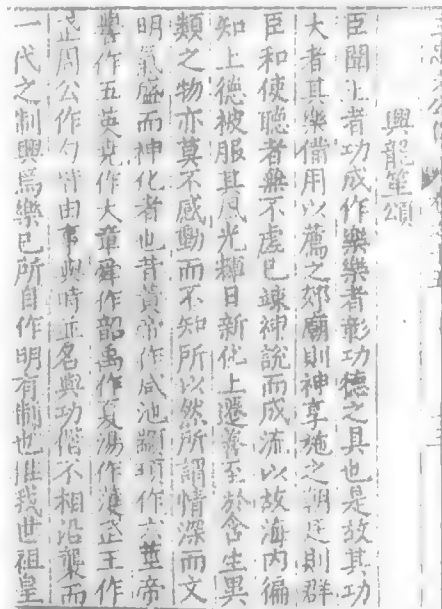 興龍笛頌
臣聞王者功成作樂樂者彰功德之具也是故其功
大者其樂備用以薦之郊廟則神享施之朝廷則群
臣和使聽者無不虛已竦神說而成流以故海內徧
知上德被服其風光輝日新化上遷善至於含生異
類之物亦莫不感動而不知所以然所謂情深而文
明氣盛而神化者也昔黃帝作咸池顓頊作六莖帝
嚳作五英堯作大章舜作韶禹作夏湯作濩武王作
武周公作勺皆由事與時正名與功偕不相沿襲而
一代之制興焉樂已所自作明有制也惟我世祖皇